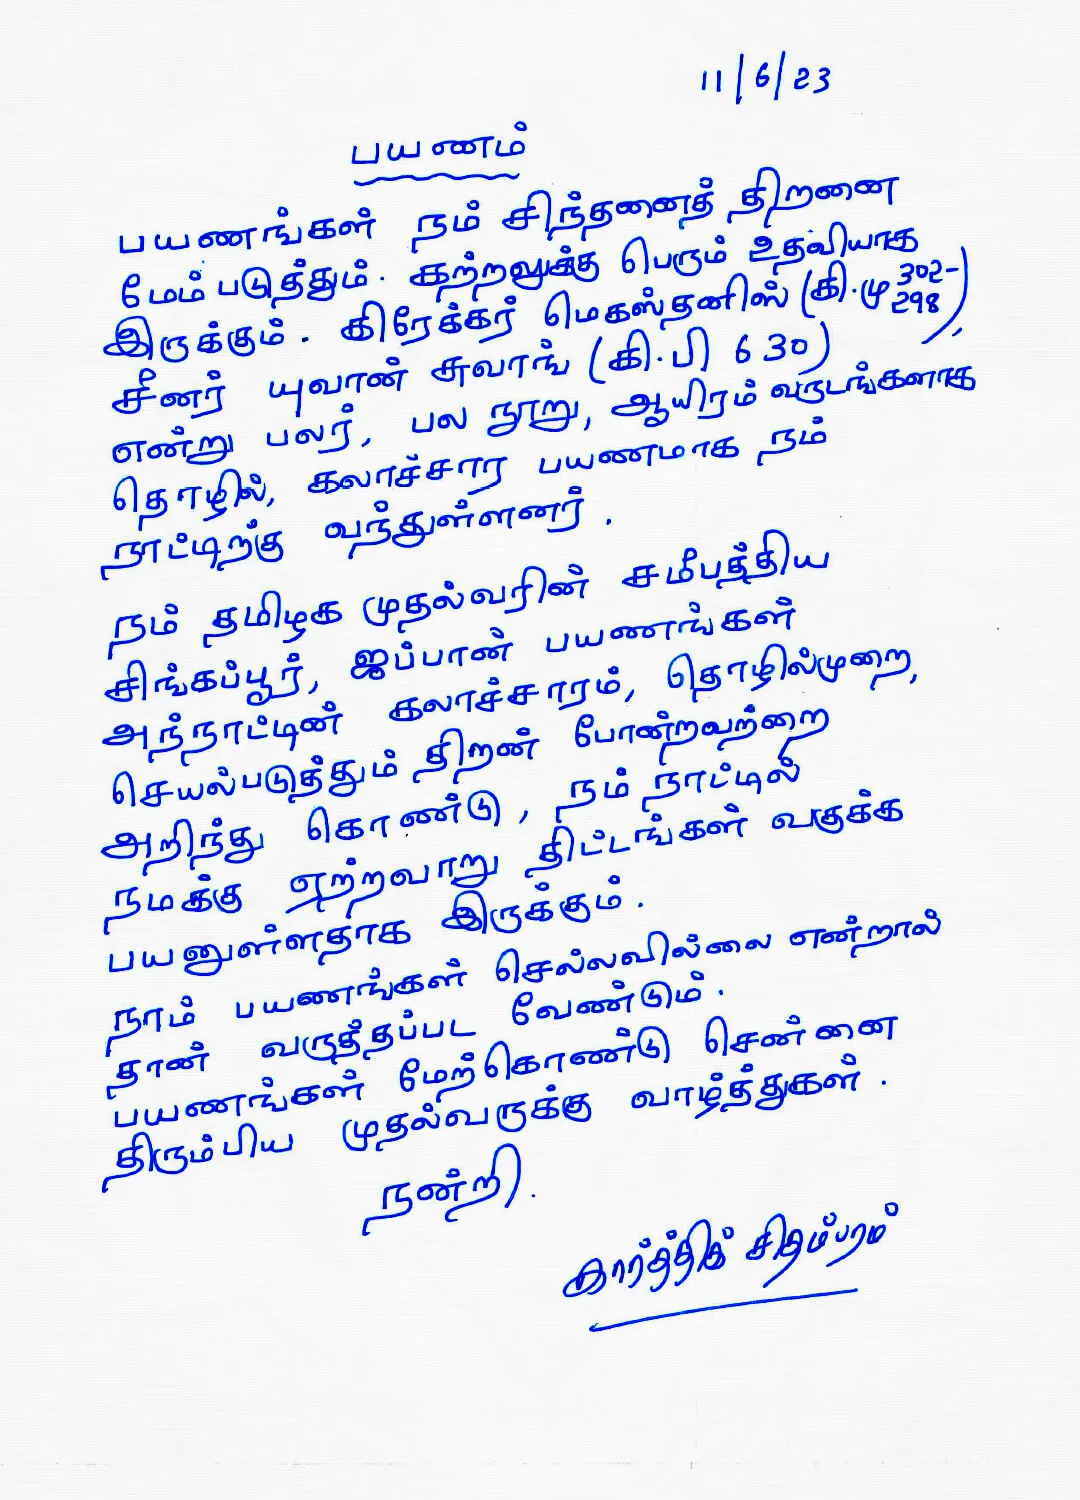 11/6/23
பயணம்
பயணங்கள் நம் சிந்தனைத் திறனை
மேம்படுத்தும். கற்றலுக்கு பெரும் உதவியாக
இருக்கும். கிரேக்கர் மெகஸ்தனிஸ் (கி.மு 302-298),
சீனர் யுவான் சுவாங் (கி.பி 630)
என்று பலர், பல நூறு, ஆயிரம் வருடங்களாக
தொழில், கலாச்சார பயணமாக நம்
நாட்டிற்கு வந்துள்ளனர்.
நம் தமிழக முதல்வரின் சமீபத்திய
சிங்கப்பூர், ஜப்பான் பயணங்கள்
அந்நாட்டின் கலாச்சாரம், தொழில்முறை,
செயல்படுத்தும் திறன் போன்றவற்றை
அறிந்து கொண்டு, நம் நாட்டில்
நமக்கு ஏற்றவாறு திட்டங்கள் வகுக்க
பயனுள்ளதாக இருக்கும்.
நாம் பயணங்கள் செல்லவில்லை என்றால்
தான் வருத்தப்பட வேண்டும்.
பயணங்கள் மேற்கொண்டு சென்னை
திரும்பிய முதல்வருக்கு வாழ்த்துகள்.
நன்றி.
கார்த்திக் சிதம்பரம்